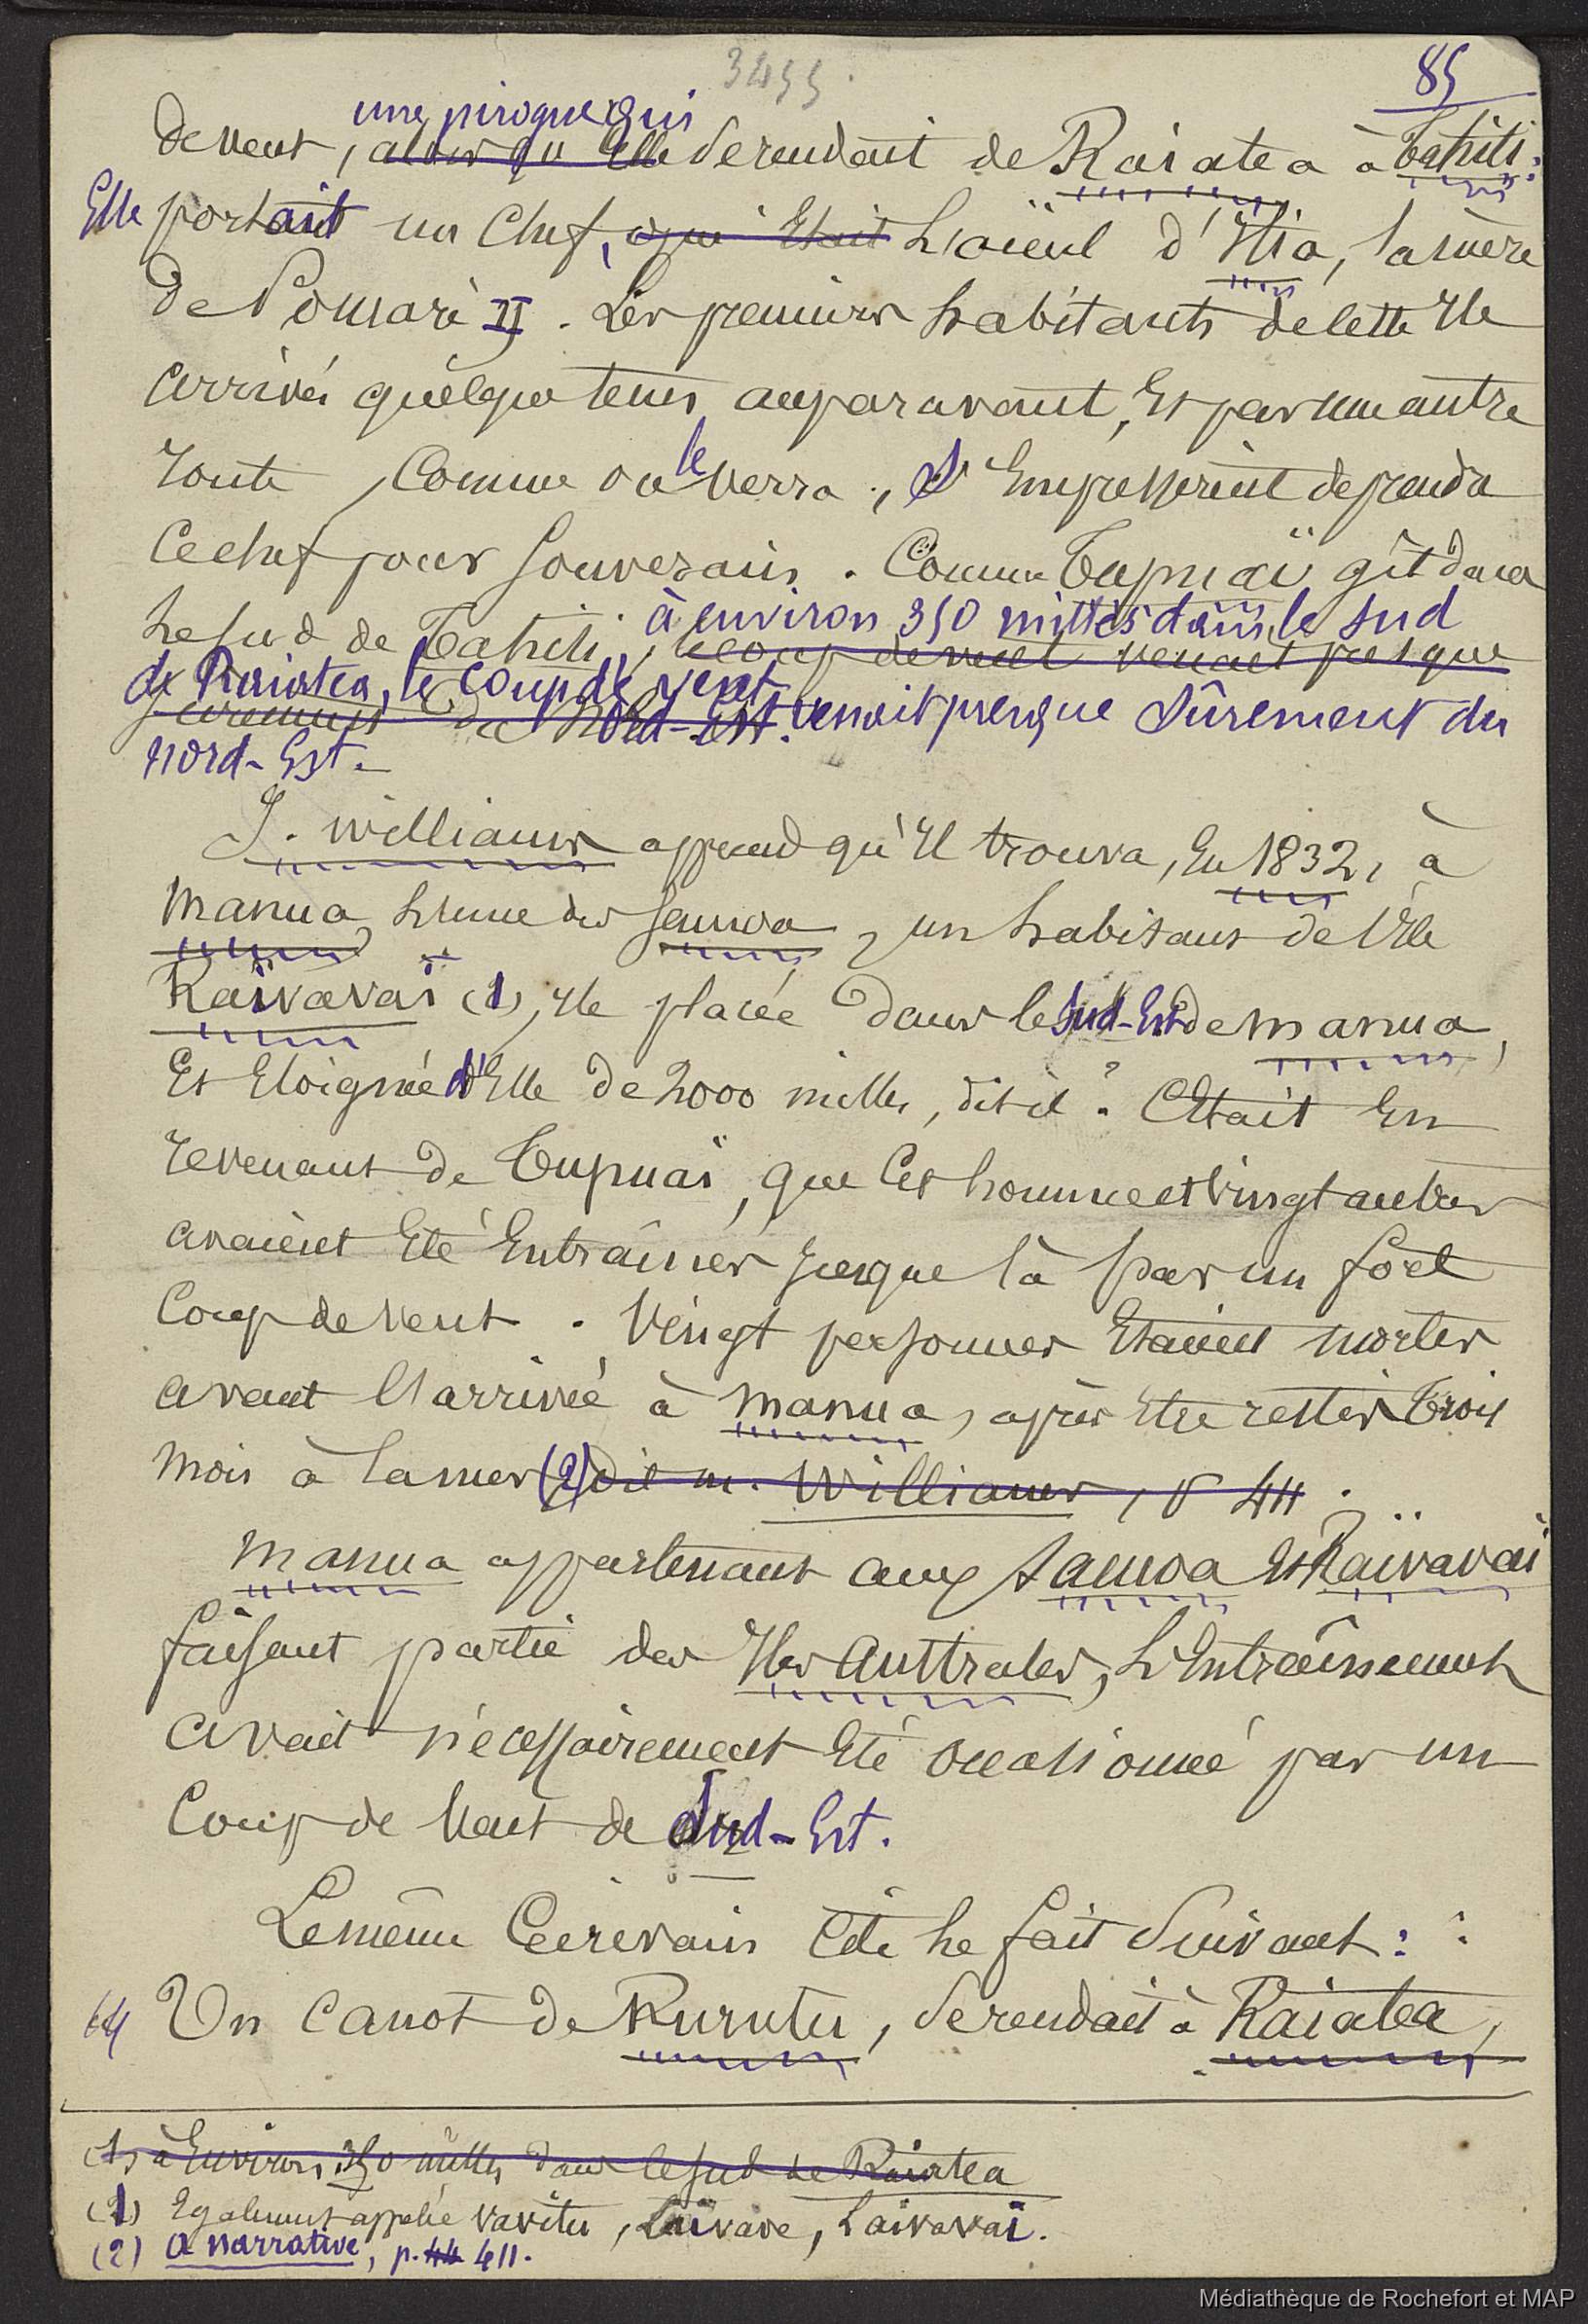 3455
85
une pirogue qui
de vent, alors qu'elle se rendait de Raiatea à Tahiti :
Elle portait un chef, qui était l'aïeul d'Itia, la mère
de Pomaré II. Les premiers habitants de cette Ile
arrivés quelque tems auparavant, Et par une autre
route, comme on le verra, s'Empressèrent de prendre
ce chef pour souverain. Comme Tupuaï gît dans
le sud de Tahiti, à environ 350 milles dans le sud
le coup de vent venait presque
de Raiatea, le coup de vent venait presque sûrement du
sûrement du Nord-Est.
nord-Est.
J. Williams apprend qu'Il trouva, En 1832, à
Manua, l'une des Samoa, un habitant de l'Ile
Raivavaï (1), Ile placée dans le Sud-Est de Manua,
Et Eloignée d'Elle de 2000 milles, dit-il. C'Etait En
revenant de Tupuai, que cet homme et vingt autres
avaient Eté Entraînés jusque là par un fort
coup de vent. Vingt personnes Etaient mortes
avant l'arrivée à Manua, après Etre restés trois
mois à la mer (2) dit M. Williams, p 411.
Manua appartenant aux Samoa Et Raïvavai
faisant partie des Iles Australes, l'Entraînement
avait nécessairement Eté occasionné par un
coup de vent de Sud-Est.
Le même Ecrivain cite le fait suivant :
64 Un canot de Rurutu, se rendait à Raiatea,
(1) à Environ 350 milles dans le sud de Raiatea
(1) Egalement appelée Vavitu, Laivave, Laivavai.
(2) A narrative, p. 44 411.
Médiathèque de Rochefort et MAP